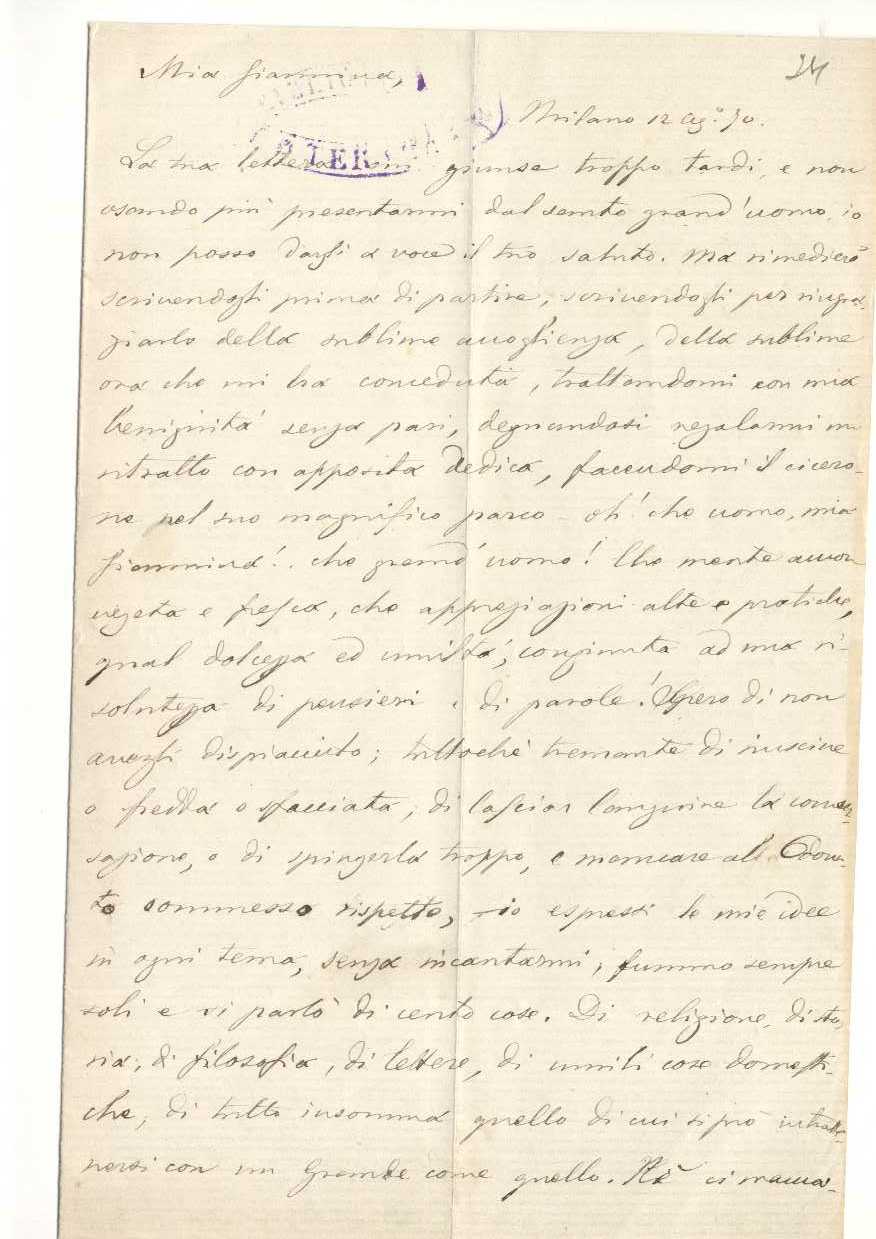 Mia Giannina,
24
Milano 12 Ag.º 70.
La tua lettera mi giunse troppo tardi, e non
osando più presentarmi dal santo grand'uomo, io
non posso dargli a voce il tuo saluto. Ma rimedierò
scrivendogli prima di partire, scrivendogli per ringra-
ziarlo della sublime accoglienza, della sublime
ora che mi ha conceduta, trattandomi con una
benignità senza pari, degnandosi regalarmi un
ritratto con apposita dedica, facendomi il cicero-
ne nel suo magnifico parco - oh! che uomo, mia
Giannina!.. che grand'uomo! Che mente ancor
vegeta e fresca, che appreziazioni alte e pratiche,
qual dolcezza ed umiltà, congiunta ad una ri-
solutezza di pensieri e di parole! Spero di non
avergli dispiaciuto; tuttochè tremante di riuscire
o fredda o sfacciata, di lasciar languire la conver-
sazione, o di spingerla troppo, e mancare al dovu-
to sommesso rispetto, - io espressi le mie idee
in ogni tema, senza incantarmi; fummo sempre
soli e si parlò di cento cose. Di religione, di sto-
ria, di filosofia, di lettere, di umili cose domesti-
che, di tutto insomma quello di cui si può intratte-
nersi con un Grande come quello. Nè ci manca-